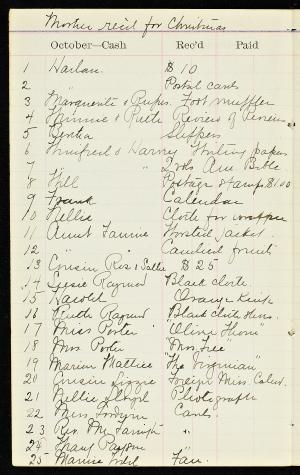 Mother rec'd for Christmas
October—Cash Rec'd Paid
1 Harlan. $10
2 " Postal cards
3 Marguerite & Rufus. Foot muffler
4 Fannie & Ruth Review of Reviews
5 Bertha Slippers
6 Winifred & Harvey Writing paper
7 " 2 vols Am. Bible.
8 Will Postage stamps $1.00
9 Frank Calendar
10 Nellie Cloth for wrapper
11 Aunt Fannie Worsted jacket.
12 " Candied fruit
13 Cousin Rex & Sallie $25
14 Jessie Raynor Black cloth
15 Harold Orange
16 Ruth Raynor Black cloth
17 Miss Porter "Olive Thorn"
18 Mrs Porter "
19 Marion Mattice "The
20 Cousin Lizzie Foreign Miss. Calend.
21 Nellie Lloyd Photograph
22 Mrs. Cards.
23 Rev. "
24 Payson "
25 Marine Fan.